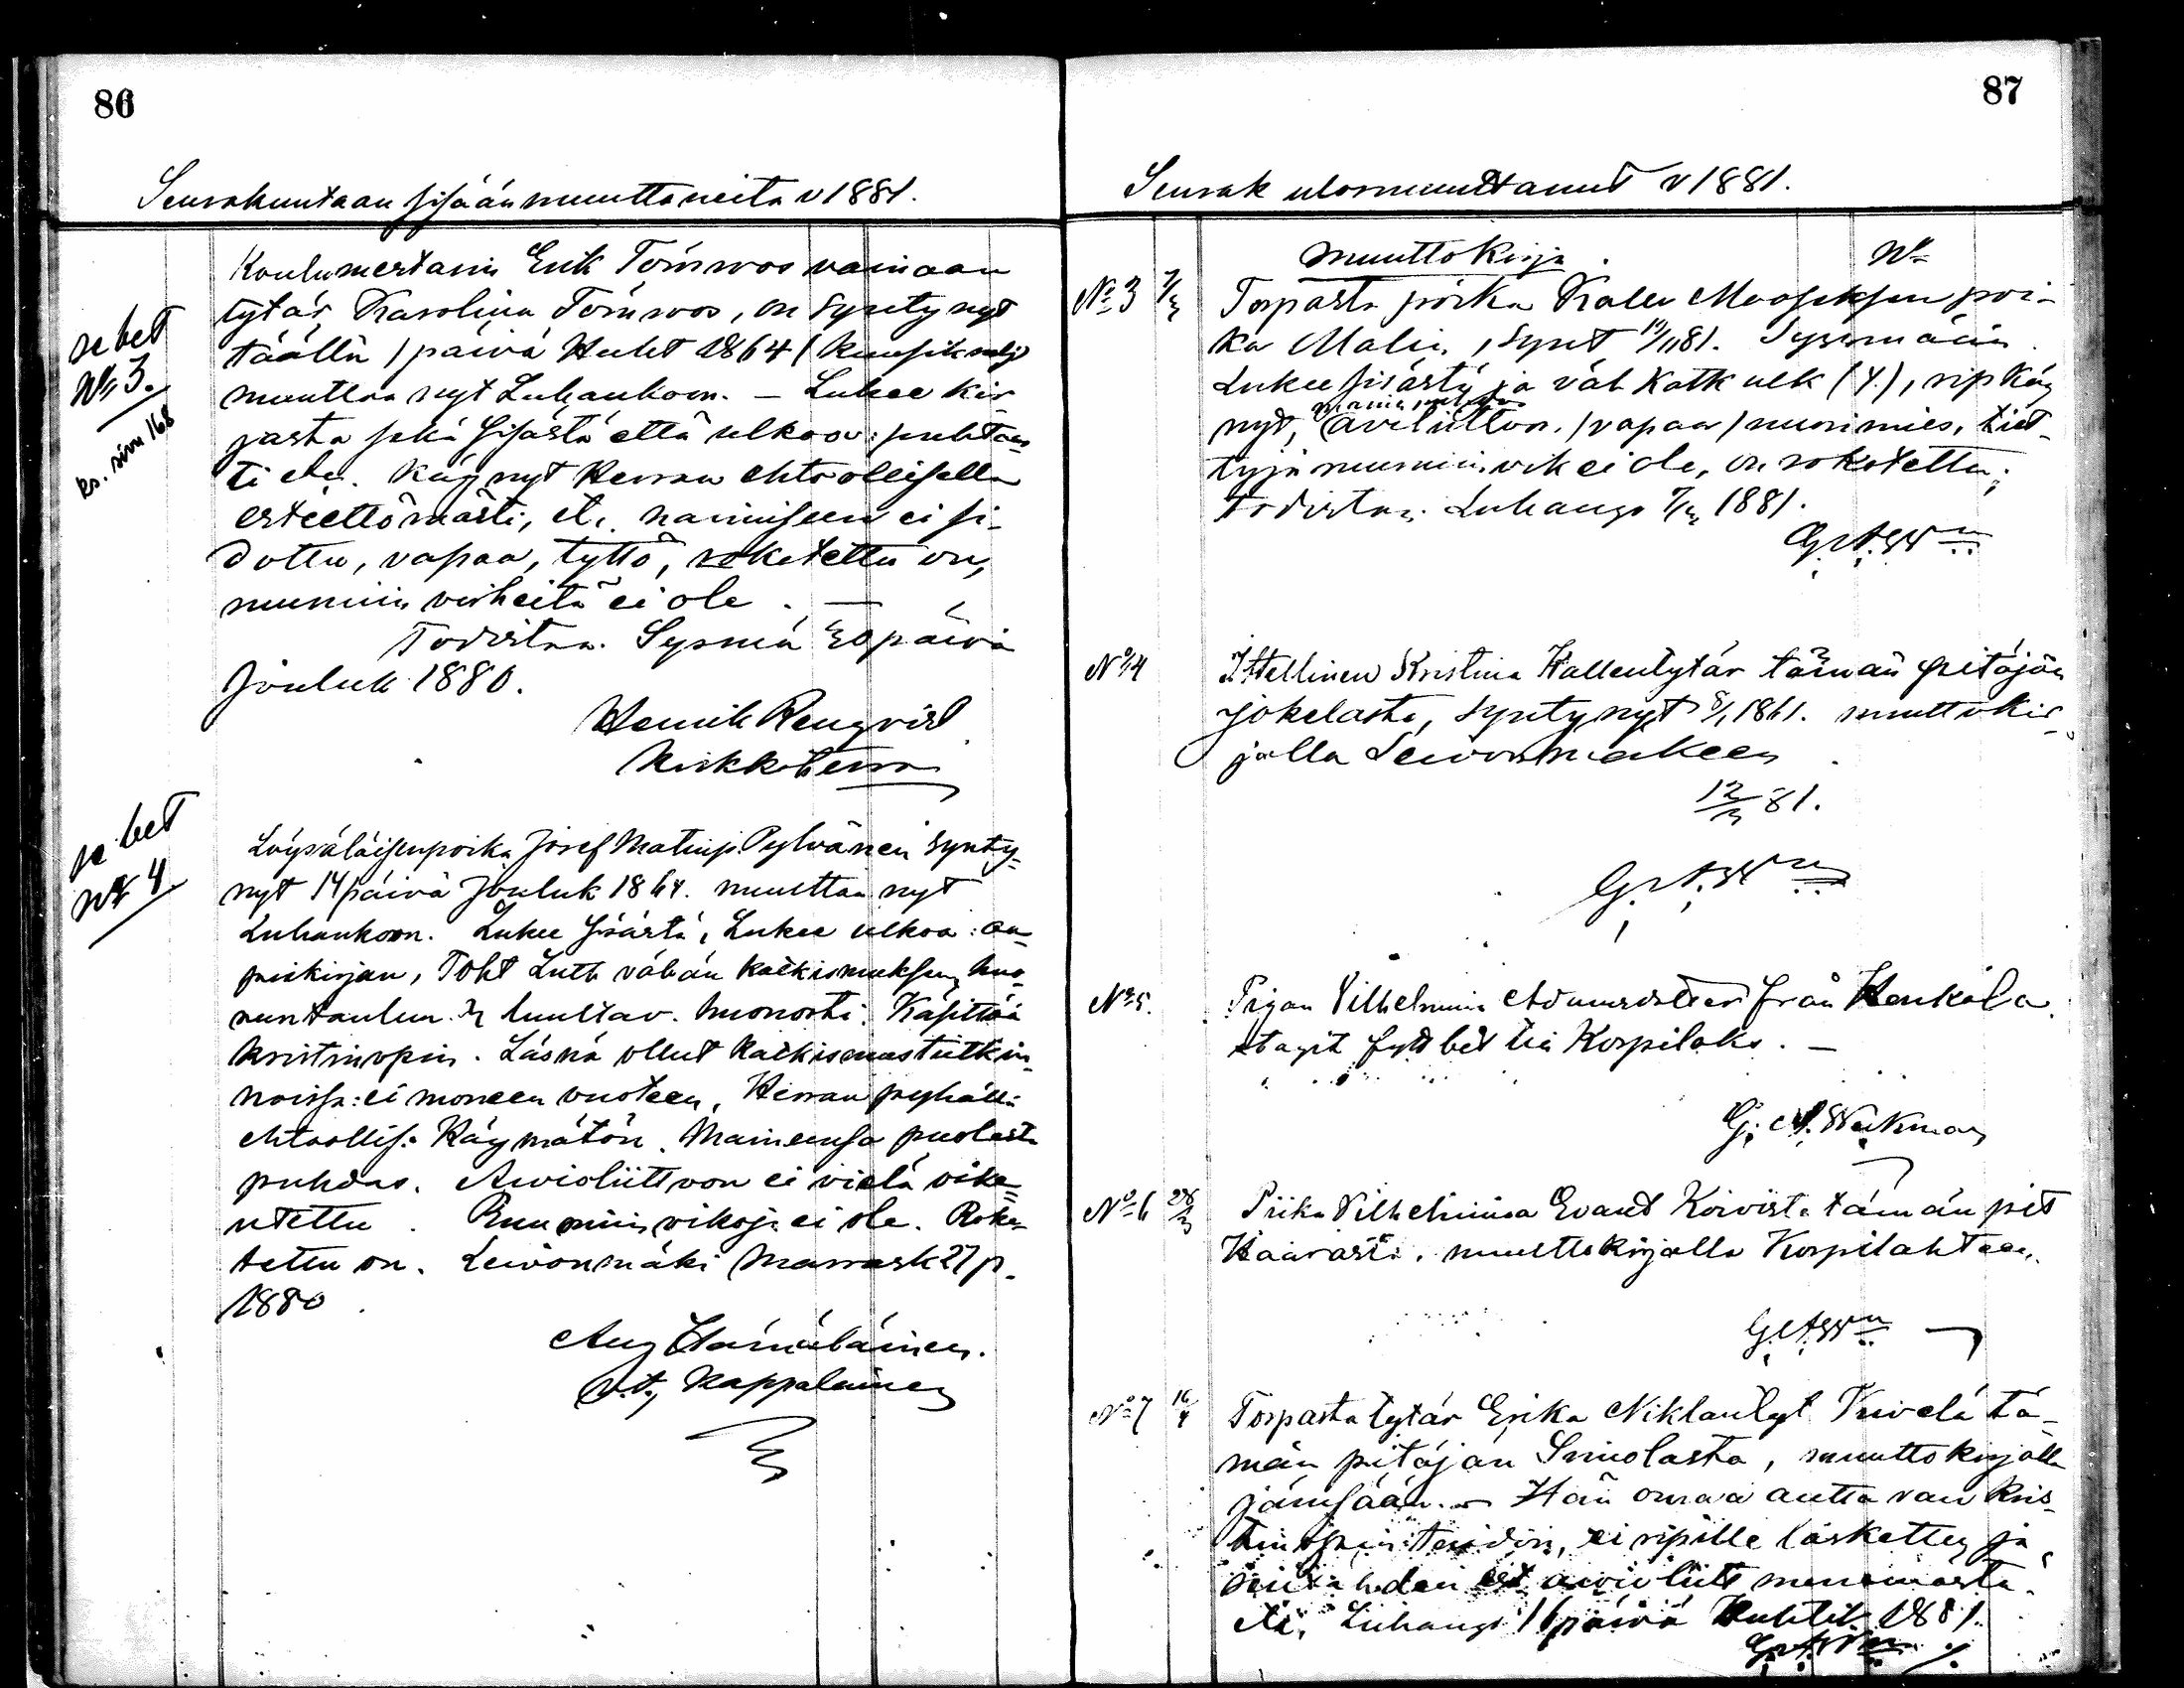 86
Seurakuntaan sisäänmuuttaneita v 1881.
Koulumestarin Erik Törnroos vainaan
tytär, Karolina Törnroos, on syntynyt
täällä 1 päivä Huht 1864 (
muuttaa nyt Luhankoon. — Lukee kir
jasta sekä sisästä että ulkoa: puhtaas
ti etc. käynyt Herran ehtoollisella
esteettömästi, etc. naimiseen ei si-
dottu, vapaa, tyttö, roketettu on,
ruumiin virheitä ei ole. —
Todistaa. Sysmä 30 päivä
Jouluk 1880.
Henrik Renqvist
Kirkkoherra
se bet
No 3.
ks. sivu 168
Löysäläisenpoika Josef Matinp. Pylvänen synty-
nyt 14 päivä Jouluk 1864. muuttaa nyt
Luhankoon. Lukee sisästä, Lukee ulkoa: aa-
piskirjan, Toht Luth vähän katkismuksen, huo-
neentaulun. huonosti. Käsittää
kristinopin. Läsnä ollut katkismustutkin-
noissa: ei moneen vuoteen, Herran pyhällä
ehtoollis: Käymätön. Maineensa puolesta
puhdas. Avioliittoon ei vielä oike-
utettu. Ruumiin vikoja ei ole. Roko-
tettu on. Leivonmäki Marrask 27 p.
1880.
Aug Hämäläinen.
v.t. Kappalainen
se bet
No 4
87
Seurak ulosmuuttanut v 1881.
muuttokirja. No
No 3 Torparin poika Kalle Mooseksen poi-
ka Malin, synt 19/11 81. Sysmään
Lukee sisästä ja väh Katk ulk (4), rip käy
nyt, avioliittoon. /vapaa/ nuorimies, tiet-
tyjä ruumiin vik ei ole, on rokotettu;
todistaa. Luhango 1881.
G. A. W n
No 4 Itsellinen Kristina Kallentytär tämän pitäjän
Jokelasta, syntynyt 8/1 1861. muuttokir-
jalla Leivonmäkeen
12/3 81.
G. A. W n
No 5. Pigan Vilhelmina från Haukola
utagit fytt bet till Korpilaks. —
G. A. Wakman
No 6 28/3 Piika Vilhelmina Evant Koivista tämän pit
Haarasta. muuttokirjalla Korpilahteen.
G. A. W n
No 7 16/4 Torparin tytär Erika Niklantyt Kuivelä tä-
män pitäjän Sniolasta, muuttokirjalla
Jämsään. — Hän omaa auttavan kris-
tinopin taidon, ei ripille laskettu, ja
avioliitt menemästä.
etc. Luhango 16 päivä Huhtik 1881.
G. A. W n